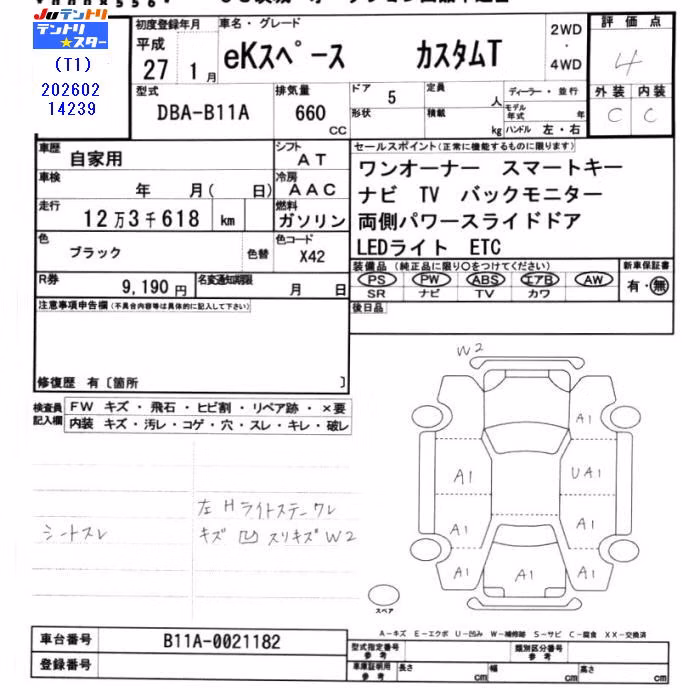 Juテントリ
テントリ★スター
(T1)
202602
14239
初度登録年月
平成
27 1 月
車名・グレード
eKスペース カスタムT
2WD
・
4WD
評価点
4
外装 内装
C C
型式
DBA-B11A
排気量
660
CC
ドア 5
形状
定員 人
積載 kg
ディーラー・並行
モデル年式 年
ハンドル 左・右
車歴 自家用
シフト AT
車検 年 月( 日)
冷房 AAC
走行 12万3千618 km
燃料 ガソリン
色 ブラック
色替
色コード X42
R券 9,190円
名変通知期限 月 日
セールスポイント(正常に機能するものに限ります)
ワンオーナー スマートキー
ナビ TV バックモニター
両側パワースライドドア
LEDライト ETC
装備品 (純正品に限り○をつけてください)
PS PW ABS エアB AW
SR ナビ TV カワ
新車保証書
有・無
後日品
注意事項申告欄(不具合内容等は具体的に記入して下さい)
修復歴 有〔箇所 〕
検査員記入欄
FW キズ・飛石・ヒビ割・リペア跡・×要
内装 キズ・汚レ・コゲ・穴・スレ・キレ・破レ
シートスレ
左Hライトステーワレ
キズ 凹 スリキズW2
W2
A1
A1
UA1
A1
A1
A1
A1
A1
スペア
A-キズ E-エクボ U-凹み W-補修跡 S-サビ C-腐食 XX-交換済
車台番号 B11A-0021182
登録番号
型式指定番号
参考
類別区分番号
参考
車庫証明用
参考
長さ cm
幅 cm
高さ cm